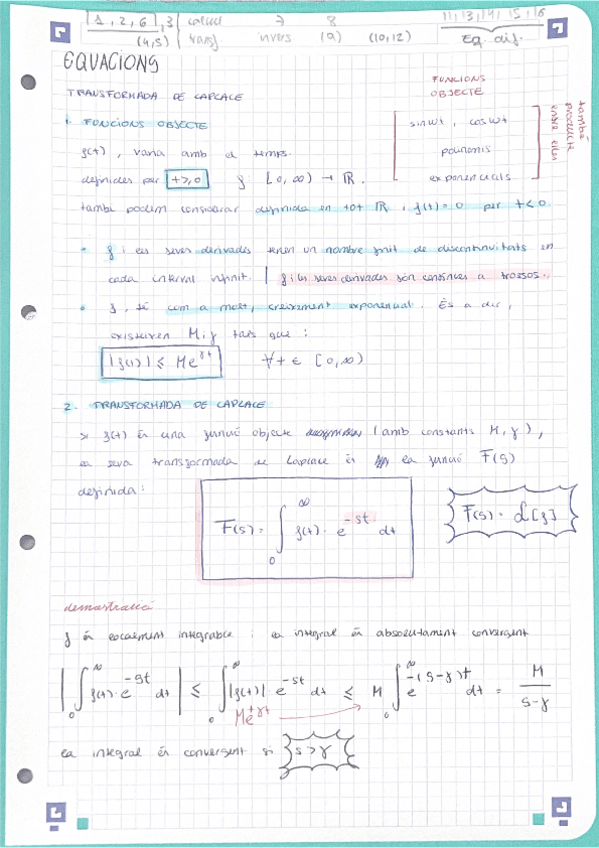 1, 2, 6, 3 calcul 7 8 11, 13, 14, 15, 16
(4,5) transf. invers (9) (10,12) Eq. dif.
EQUACIONS
TRANSFORMADA DE LAPLACE
FUNCIONS OBJECTE
1. FUNCIONS OBJECTE
sinwt, coswt
polinomis
exponencials
també producte entre elles
f(t), varia amb el temps.
definides per t≥0 f: [0, ∞) → ℝ.
també podem considerar definida en tot ℝ, f(t)=0 per t<0.
• f i les seves derivades tenen un nombre finit de discontinuitats en
cada interval infinit. | f i les seves derivades son contínues a trossos.
• f, té com a molt, creixement exponencial. És a dir,
existeixen M i γ tals que:
|f(t)| ≤ Me^γt ∀t ∈ [0, ∞)
2. TRANSFORMADA DE LAPLACE
Si f(t) és una funció objecte (amb constants M, γ),
la seva transformada de Laplace és la funció F(s)
definida:
F(s) = ∫₀^∞ f(t) · e^-st dt
F(s) = ℒ[f]
demostració
f és localment integrable i la integral és absolutament convergent
|∫₀^∞ f(t) · e^-st dt| ≤ ∫₀^∞ |f(t)| e^-st dt ≤ M ∫₀^∞ e^-(s-γ)t dt = M/(s-γ)
Me^+γt
la integral és convergent si s>γ